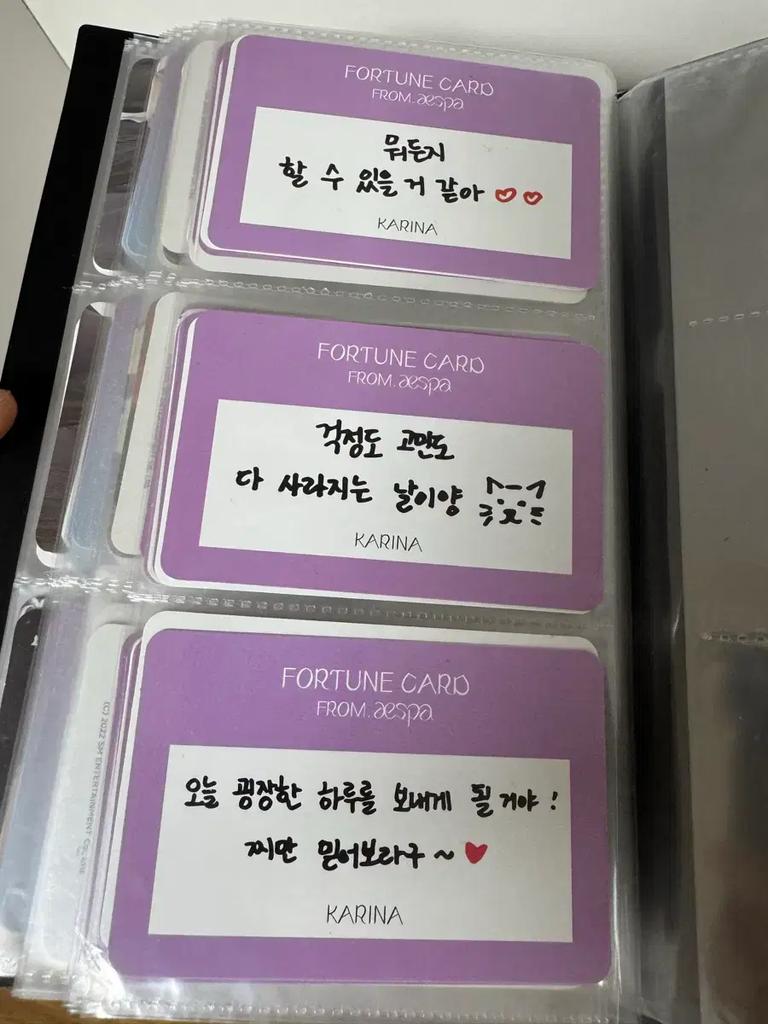 FORTUNE CARD
FROM. aespa
뭐든지
할 수 있을 거 같아
KARINA
FORTUNE CARD
FROM. aespa
걱정도 고민도
다 사라지는 날이양
KARINA
FORTUNE CARD
FROM. aespa
오늘 굉장한 하루를 보내게 될거야 !
찌만 믿어보라구 ~
KARINA
(C) 2022 SM ENTERTAINMENT CO., LTD.